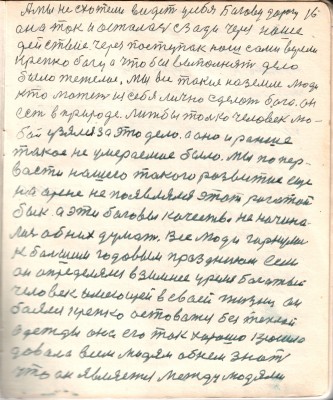 А мы не схотели видеть у себя Богову дорогу 16
она так и осталась сзади через наше
действие через поступок наш сами взяли
крепко богу а чтобы выполнять дело
было тяжело. Мы все такие на земле люди
кто может из себя лично сделать бога. он
есть в природе. лишь бы только человек лю-
бой взялся за это дело. а оно и раньше
такое не умераемие было. Мы по пер-
васти нашего такого развития еще
на арене не появлялся этот рогатой
бык. а эти боговы качества не начина-
ли об них думать. Все люди гарнули
к большим годовым праздникам Если
он определялся в зимнее время богатый
человек имеющей в своей жизни он
боялся крепко оставаться без теплой
одежды она его так хорошо
довала всем людям об нем знать
что он является между людями